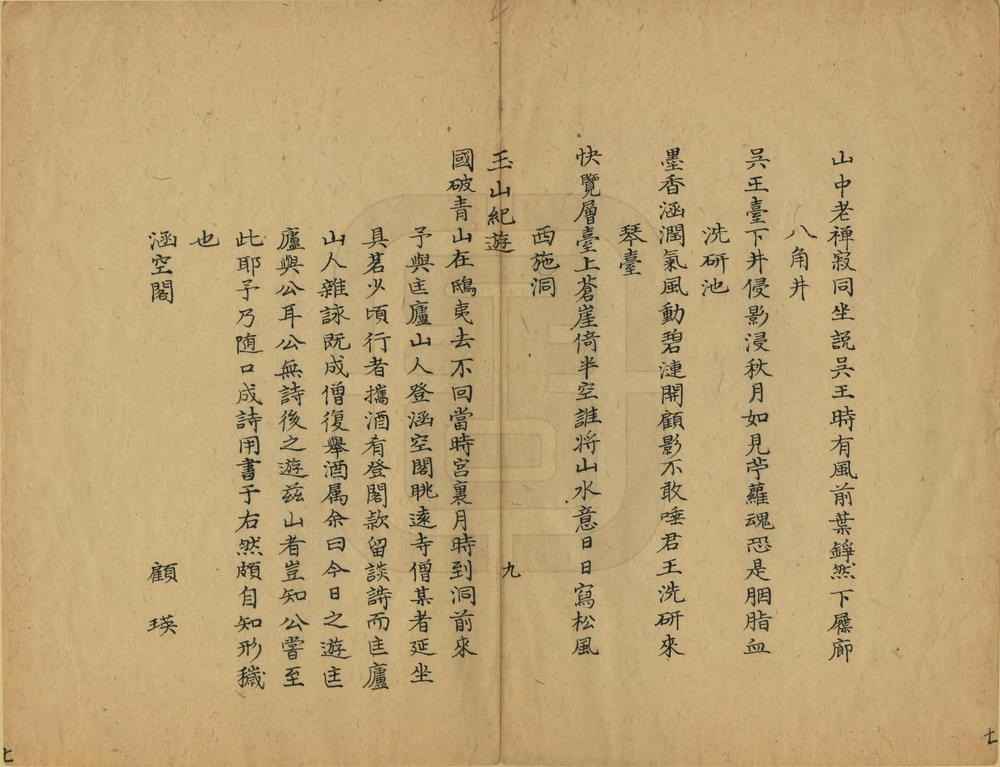 山中老禪寂同坐説吳王時有風前葉鏦然下屧廊
八角井
吳王臺下井侵影浸秋月如見苧蘿魂恐是胭脂血
洗研池
墨香涵潤氣風動碧漣開顧影不敢唾君王洗研來
琴臺
快覽層臺上蒼崖倚半空誰將山水意日日寫松風
西施洞
玉山紀遊
九
國破青山在鴟夷去不回當時宮裏月時到洞前來
予與匡廬山人登涵空閣眺遠寺僧某者延坐
具茗少頃行者攜酒肴登閣款留談詩而匡廬
山人雜詠既成僧復舉酒属余曰今日之遊匡
廬與公耳公無詩後之遊茲山者豈知公嘗至
此耶予乃随口成詩用書于右然頗自知形穢
也
涵空閣
顧瑛
七
七